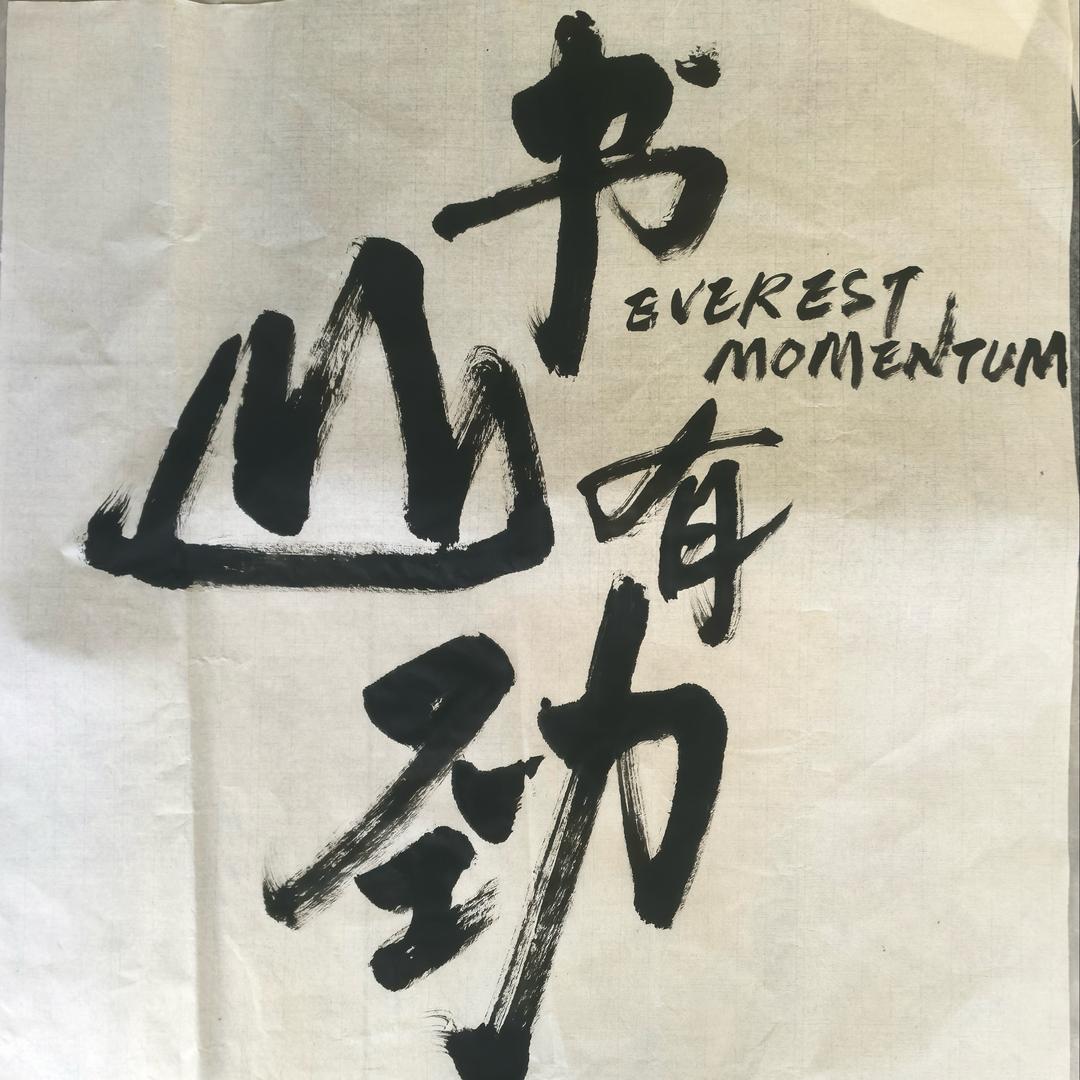 书
山
EVEREST
MOMENTUM
有
劲